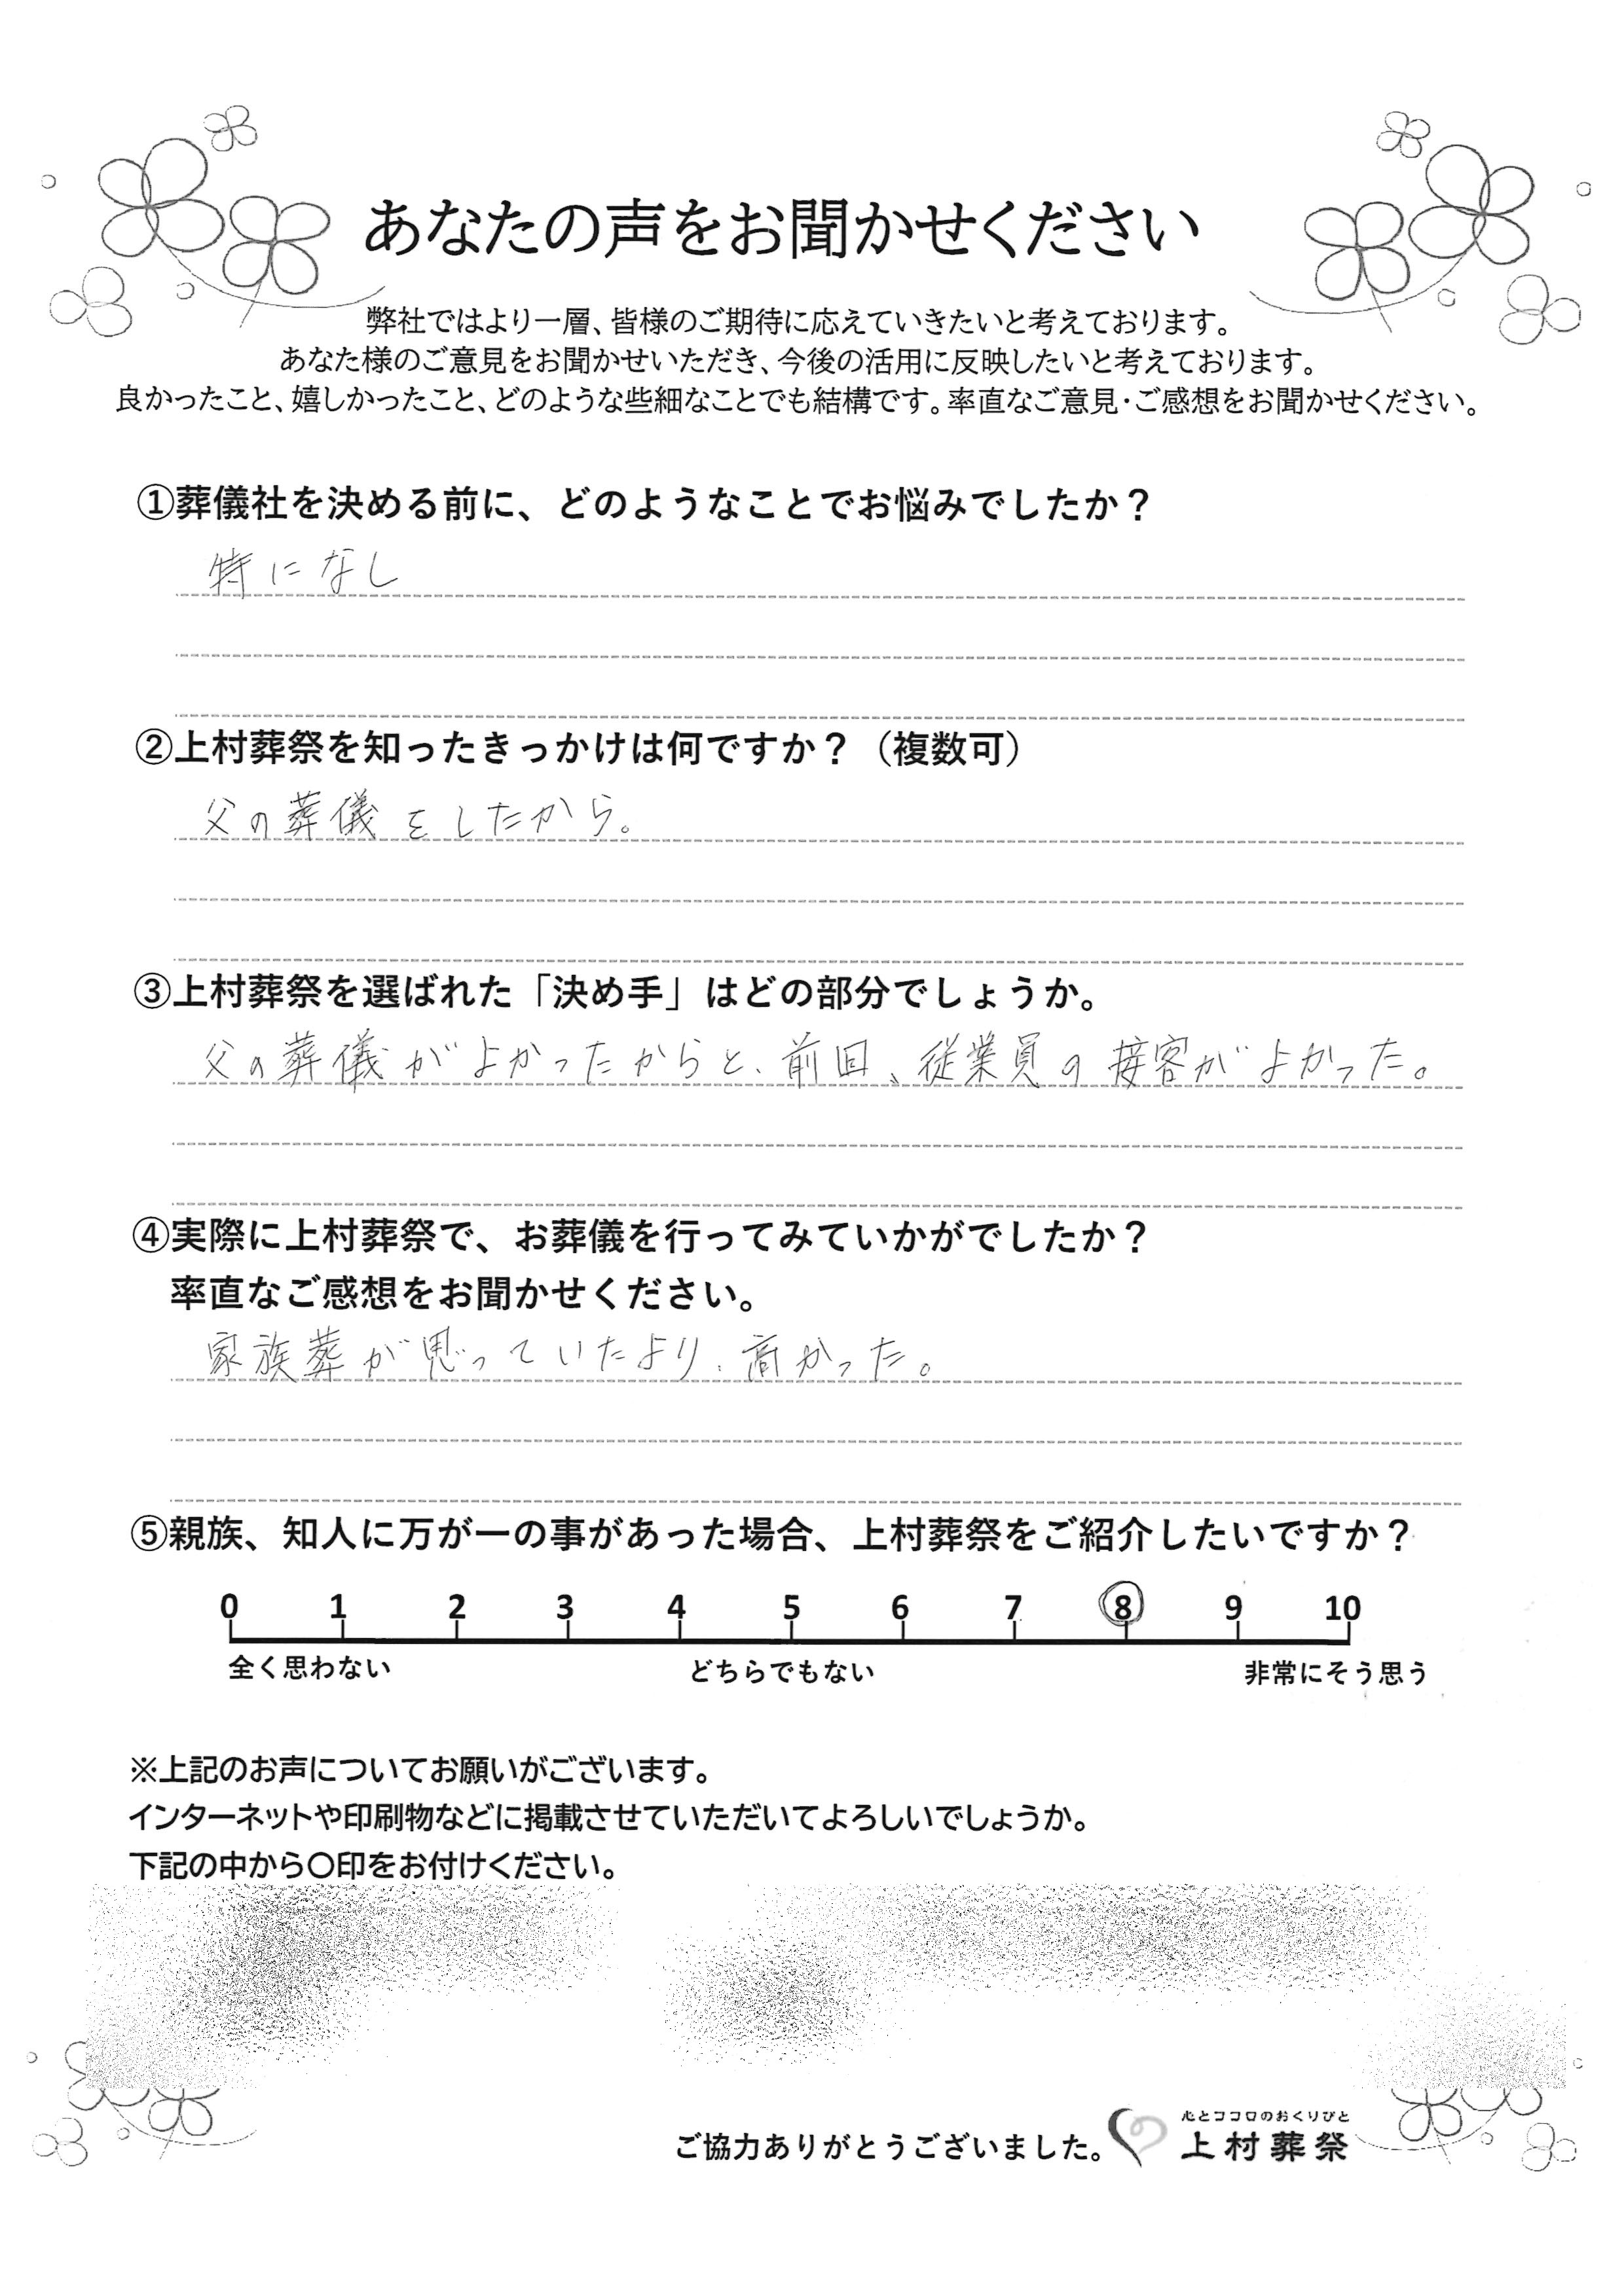 あなたの声をお聞かせください
弊社ではより一層、皆様のご期待に応えていきたいと考えております。
あなた様のご意見をお聞かせいただき、今後の活用に反映したいと考えております。
良かったこと、嬉しかったこと、どのような些細なことでも結構です。率直なご意見・ご感想をお聞かせください。
①葬儀社を決める前に、どのようなことでお悩みでしたか？
特になし
②上村葬祭を知ったきっかけは何ですか？（複数可）
父の葬儀をしたから。
③上村葬祭を選ばれた「決め手」はどの部分でしょうか。
父の葬儀がよかったからと、前回、従業員の接客がよかった。
④実際に上村葬祭で、お葬儀を行ってみていかがでしたか？
率直なご感想をお聞かせください。
家族葬が思っていたより、高かった。
⑤親族、知人に万が一の事があった場合、上村葬祭をご紹介したいですか？
0 1 2 3 4 5 6 7 8 9 10
全く思わない どちらでもない 非常にそう思う
※上記のお声についてお願いがございます。
インターネットや印刷物などに掲載させていただいてよろしいでしょうか。
下記の中から〇印をお付けください。
心とココロのおくりびと
ご協力ありがとうございました。 上村葬祭